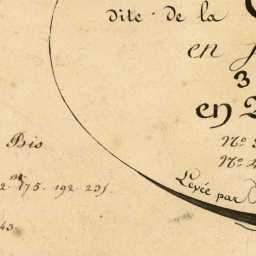 dite de la
en
3
en 2
N.º
N.º
Levée par
Bis
175. 192. 235.
43.